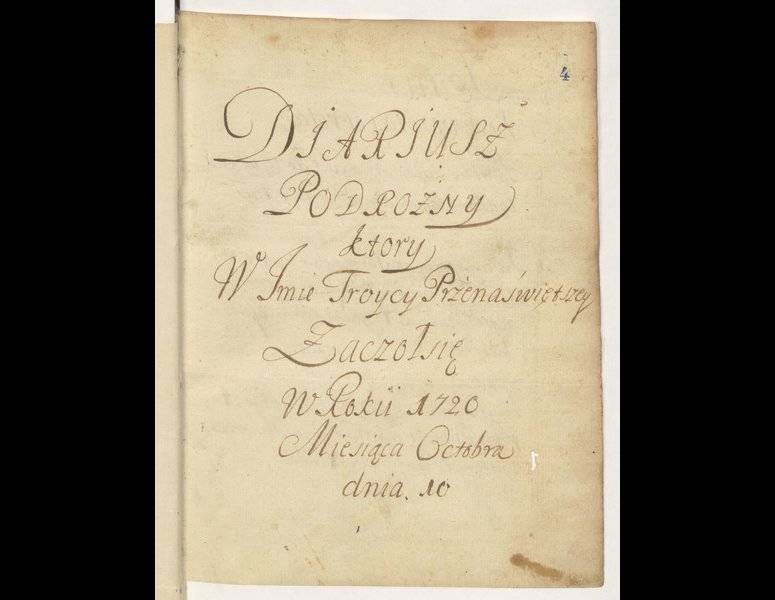 4
DIARIUSZ
PODROZNY
ktory
W Imie Troycy Przenaświętszey
Zaczoł się
W Roku 1720
Miesiąca Octobra
dnia. 10